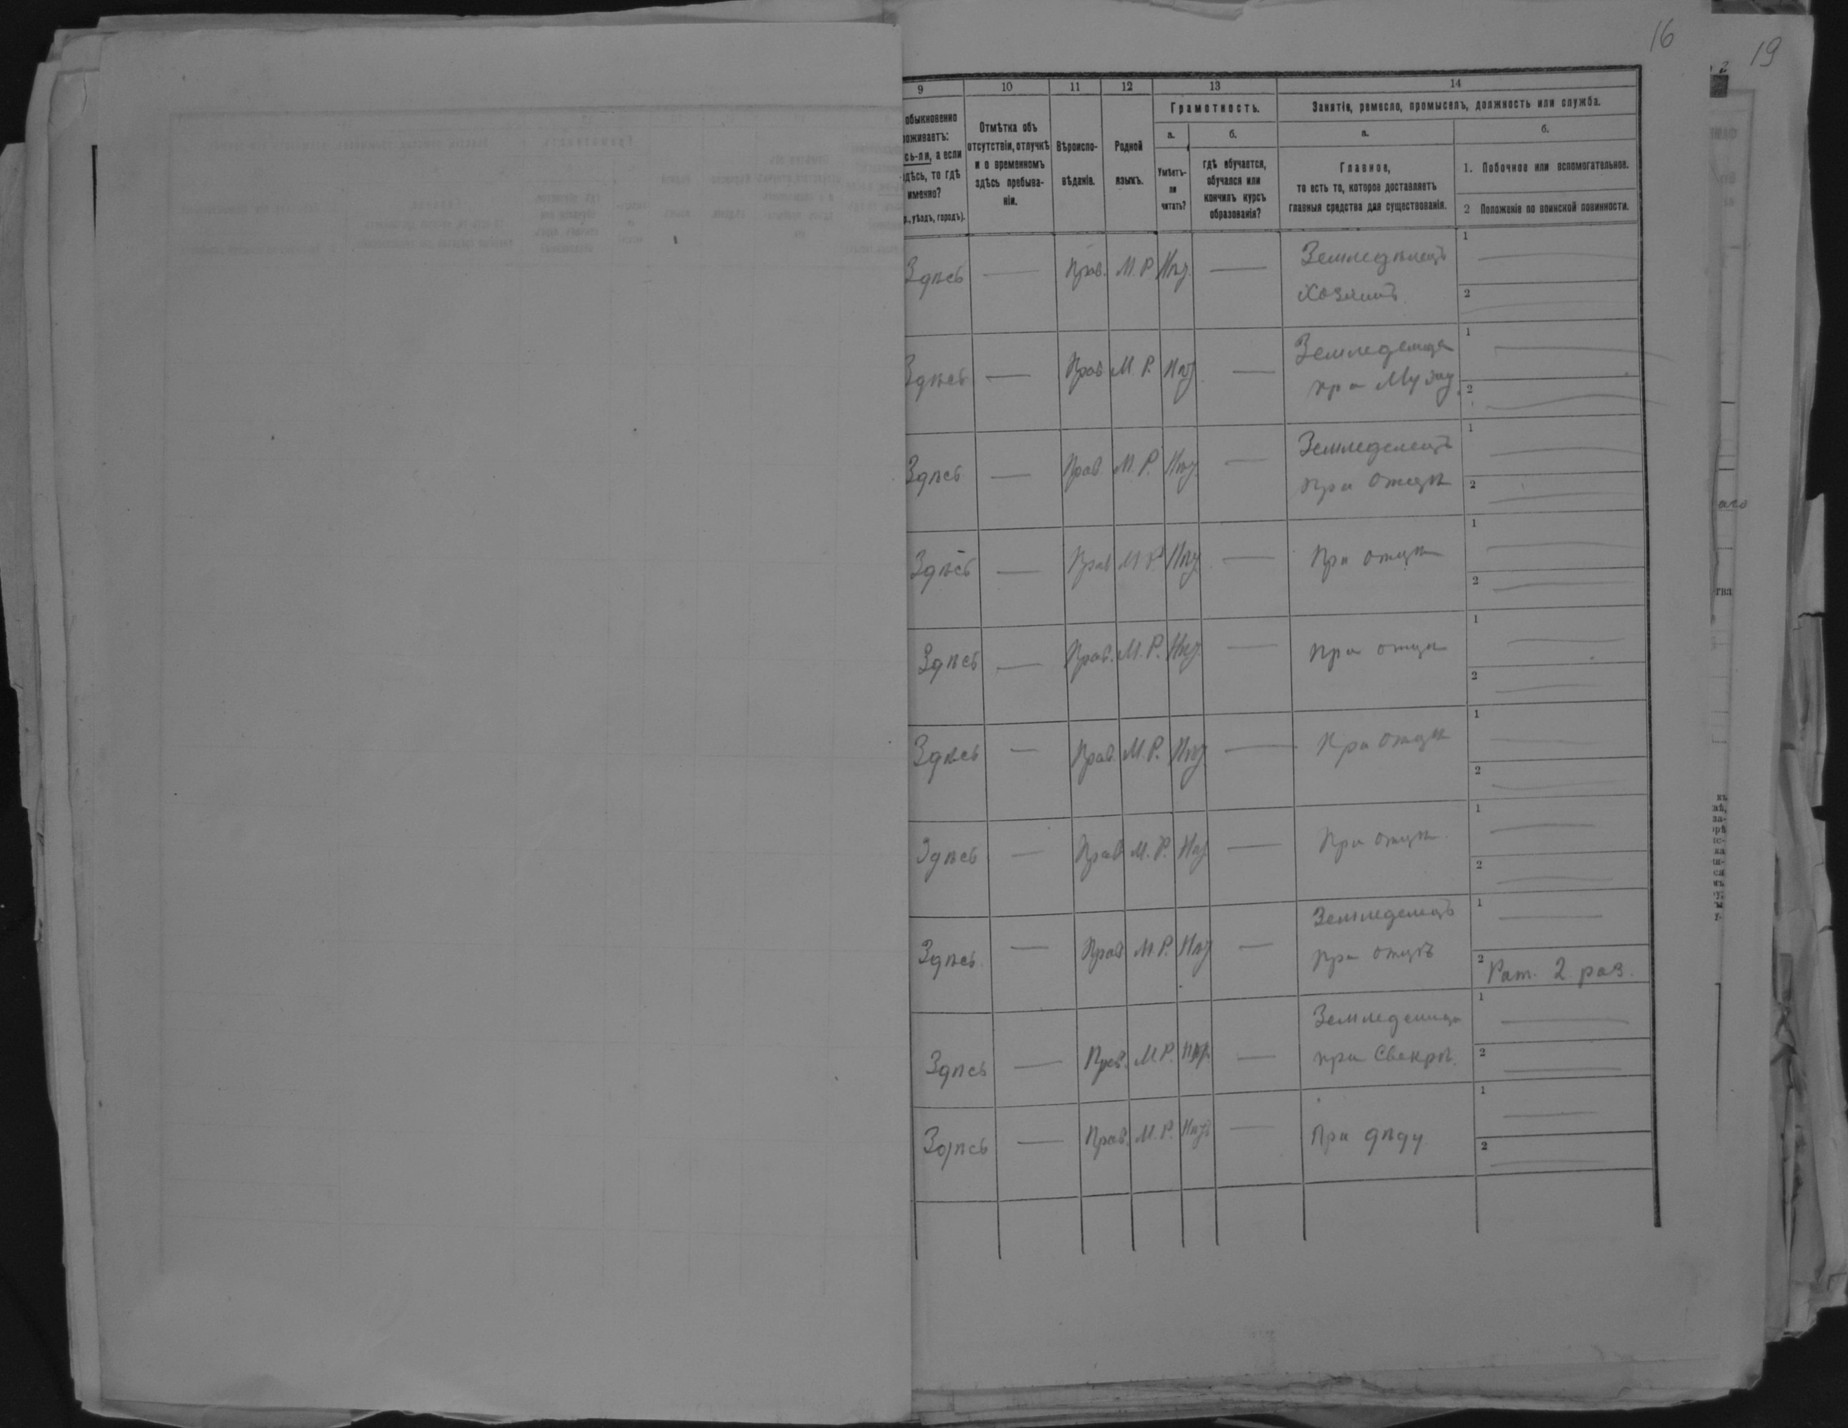 16
19
9 10 11 12 13 14
обыкновенно
проживаетъ:
здѣсь-ли, а если
не здѣсь, то гдѣ
именно?
Отмѣтка объ
отсутствіи, отлучкѣ
и о временномъ
здѣсь пребыва-
ніи.
Вѣроиспо-
вѣданіе.
Родной
языкъ.
Грамотность.
а.
Умѣетъ-
ли
читать?
б.
гдѣ обучается,
обучался или
кончилъ курсъ
образованія?
Занятіе, ремесло, промыселъ, должность или служба.
а.
Главное,
то есть то, которое доставляетъ
главныя средства для существованія.
б.
1. Побочное или вспомогательное.
2 Положеніе по воинской повинности.
Здѣсь — Прав. М. Р. Нѣт — Земледѣлецъ
Хозяинъ
1
2
Здѣсь — Прав М. Р. Нѣт — Земледелица
при Мужу
1
2
Здѣсь — Прав. М. Р. Нѣт — Земледелецъ
при Отцѣ
1
2
Здѣсь — Прав М Р Нѣт — При отцѣ
1
2
Здѣсь — Прав. М. Р. Нѣт — При отцѣ
1
2
Здѣсь — Прав. М. Р. Нѣт — При отцѣ
1
2
Здѣсь — Прав М. Р. Нѣт — При отцѣ
1
2
Здѣсь — Прав М Р. Нѣт — Земледелецъ
при отцѣ
1
2 Рат. 2 раз.
Здѣсь — Прав. М Р. Нѣт — Земледелица
при Свекрѣ.
1
2
Здѣсь — Прав. М. Р. Нѣт — При дѣду
1
2